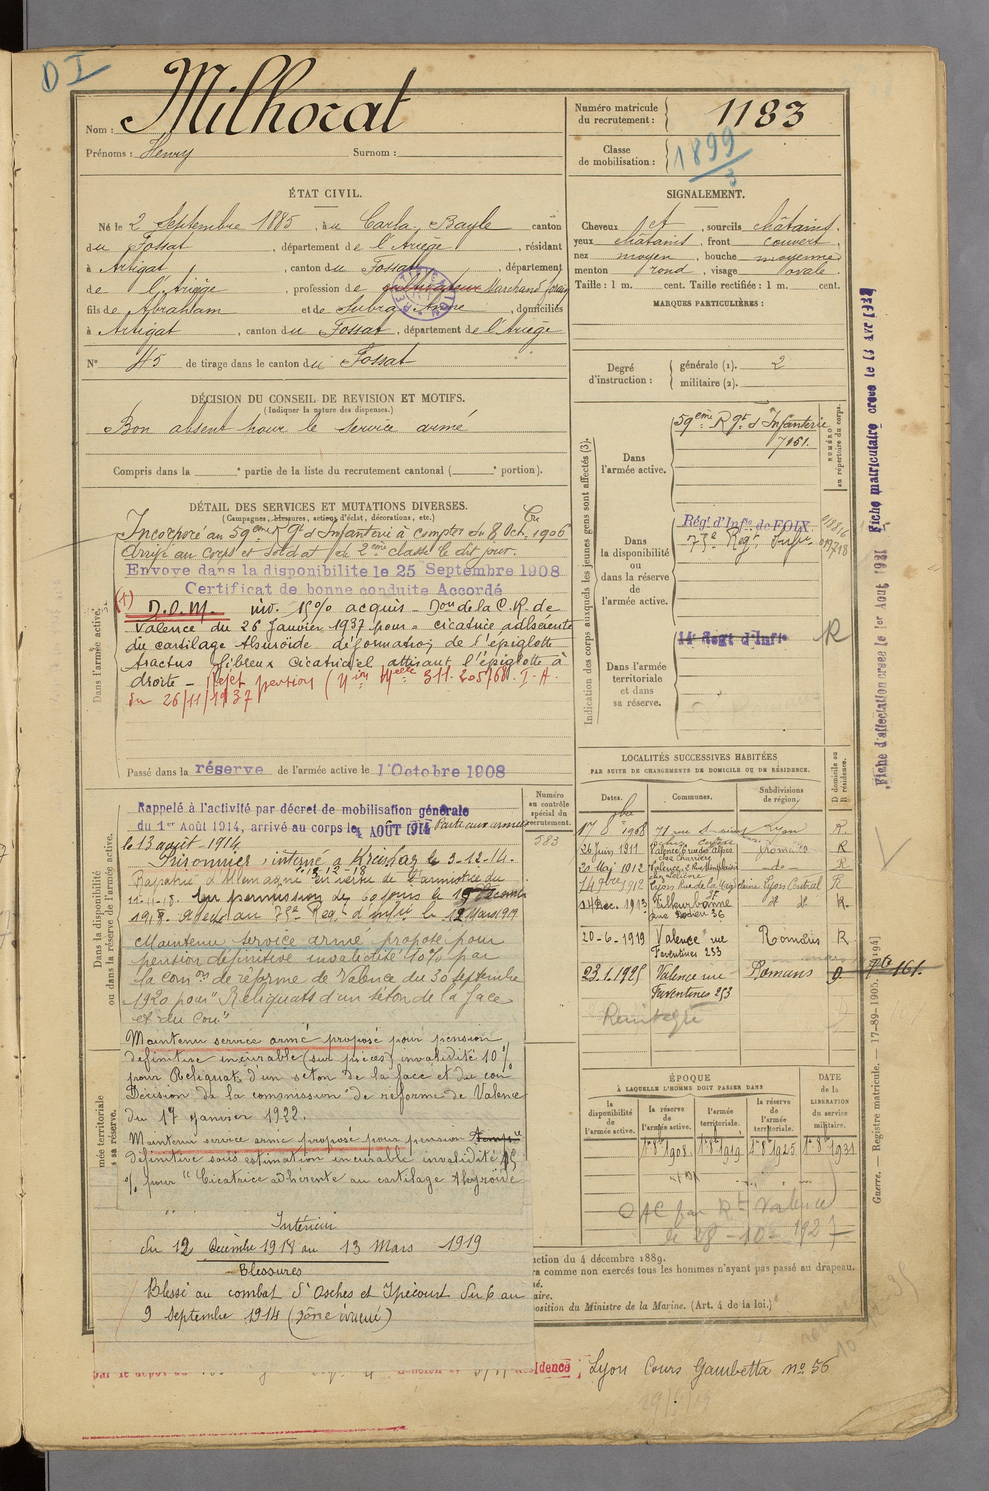 D I
Nom : Milhorat
Prénoms : Henry Surnom :
Numéro matricule du recrutement : 1183
Classe de mobilisation : 1899/3
ÉTAT CIVIL.
Né le 2 Septembre 1885, à u Carla-Bayle canton
du Fossat, département de l'Ariège, résidant
à Artigat, canton du Fossat, département
de l'Ariège, profession de cultivateur Marchand forain
fils de Abraham et de Subra Anne, domiciliés
à Artigat, canton du Fossat, département de l'Ariège
N° 45 de tirage dans le canton du Fossat
SIGNALEMENT.
Cheveux et, sourcils châtains.
yeux châtains, front couvert,
nez moyen, bouche moyenne
menton rond, visage ovale.
Taille : 1 m. cent. Taille rectifiée : 1 m. cent.
MARQUES PARTICULIÈRES :
Degré d'instruction : générale (1). 2
militaire (2).
DÉCISION DU CONSEIL DE REVISION ET MOTIFS.
(Indiquer la nature des dispenses.)
Bon absent pour le service armé
Compris dans la e partie de la liste du recrutement cantonal ( e portion).
DÉTAIL DES SERVICES ET MUTATIONS DIVERSES.
(Campagnes, blessures, actions d'éclat, décorations, etc.)
Incorporé au 59ème Rgt d'Infanterie à compter du 8 Octbre 1906
Arrivé au corps et soldat de 2ème classe le dit jour.
Envoyé dans la disponibilité le 25 Septembre 1908
Certificat de bonne conduite Accordé
Dans l'armée active.
D.O.M. inv. 15% acquis - Don de la C.R. de
Valence du 26 Janvier 1937 pour = cicatrice adhérente
du cartilage thyroïde déformation de l'épiglotte
tractus fibreux cicatriciel attirant l'épiglotte à
droite - Rejet pension
du 26/11/1937
Passé dans la réserve de l'armée active le 1er Octobre 1908
Numéro au contrôle spécial du recrutement.
583
Dans la disponibilité ou dans la réserve de l'armée active.
Rappelé à l'activité par décret de mobilisation générale
du 1er Août 1914, arrivé au corps le 4 AOÛT 1914 Parti aux armées
le 13 août 1914.
Prisonnier, interné à le 3-12-14.
Rapatrié d'Allemagne le 12-12-18 en vertu de l'armistice du
11-11-18. En permission de 60 jours le 15 Décembre
1918. affecté au 75e Regt d'infie le 12 Mars 1919
Maintenu service armé proposé pour
pension définitive invalidité 10% par
la comon de réforme de Valence du 30 septembre
1920 pour "Reliquats d'un séton de la face
et du cou"
Maintenu service armé proposé pour pension
définitive incurable (sur pièces) invalidité 10%
pour Reliquat d'un séton de la face et du cou
Décision de la commission de réforme de Valence
du 17 Janvier 1922.
Maintenu service armé proposé pour pension
définitive sous estimation incurable invalidité 15
% pour "Cicatrice adhérente au cartilage thyroïde
Intérieur
du 12 décembre 1918 au 13 Mars 1919
Blessures
Blessé au combat d'Osches et Ipécourt du 6 au
9 septembre 1914
Indication des corps auxquels les jeunes gens sont affectés (3).
NUMÉRO au répertoire du corps.
Dans l'armée active.
59ème Rgt d'Infanterie
7151.
Dans la disponibilité ou dans la réserve de l'armée active.
Régt d'Infie de FOIX
75e Regt Infie
Dans l'armée territoriale et dans sa réserve.
R
LOCALITÉS SUCCESSIVES HABITÉES
PAR SUITE DE CHANGEMENTS DE DOMICILE OU DE RÉSIDENCE.
Dates. Communes. Subdivisions de région. D domicile ou R résidence.
17 8bre 1908 71 rue Lyon R.
26 juin 1911 Valence Romans R
20 Mai 1912 Valence -do- R
14 9bre 1912 Lyon Lyon Central R
24 Dec. 1913 Villeurbanne d° d° R.
20-6-1919 Valence rue Faventines 253 Romans R
23.1.1925 Valence rue Faventines 253 Romans D
ÉPOQUE
À LAQUELLE L'HOMME DOIT PASSER DANS
la disponibilité de l'armée active. la réserve de l'armée active. l'armée territoriale. la réserve de l'armée territoriale. DATE de la LIBÉRATION du service militaire.
1er 8bre 1908 1er 8bre 1919 1er 8bre 1925 1er 8bre 1931
Valence
le 28-10-1927
uction du 4 décembre 1889.
ra comme non exercés tous les hommes n'ayant pas passé au drapeau.
aire.
position du Ministre de la Marine. (Art. 4 de la loi.)
Résidence Lyon Cours Gambetta n° 56
Guerre. — Registre matricule. — 17-89-1905.
Fiche d'affectation créée le 1er Août 1931 Fiche matriculaire créée le